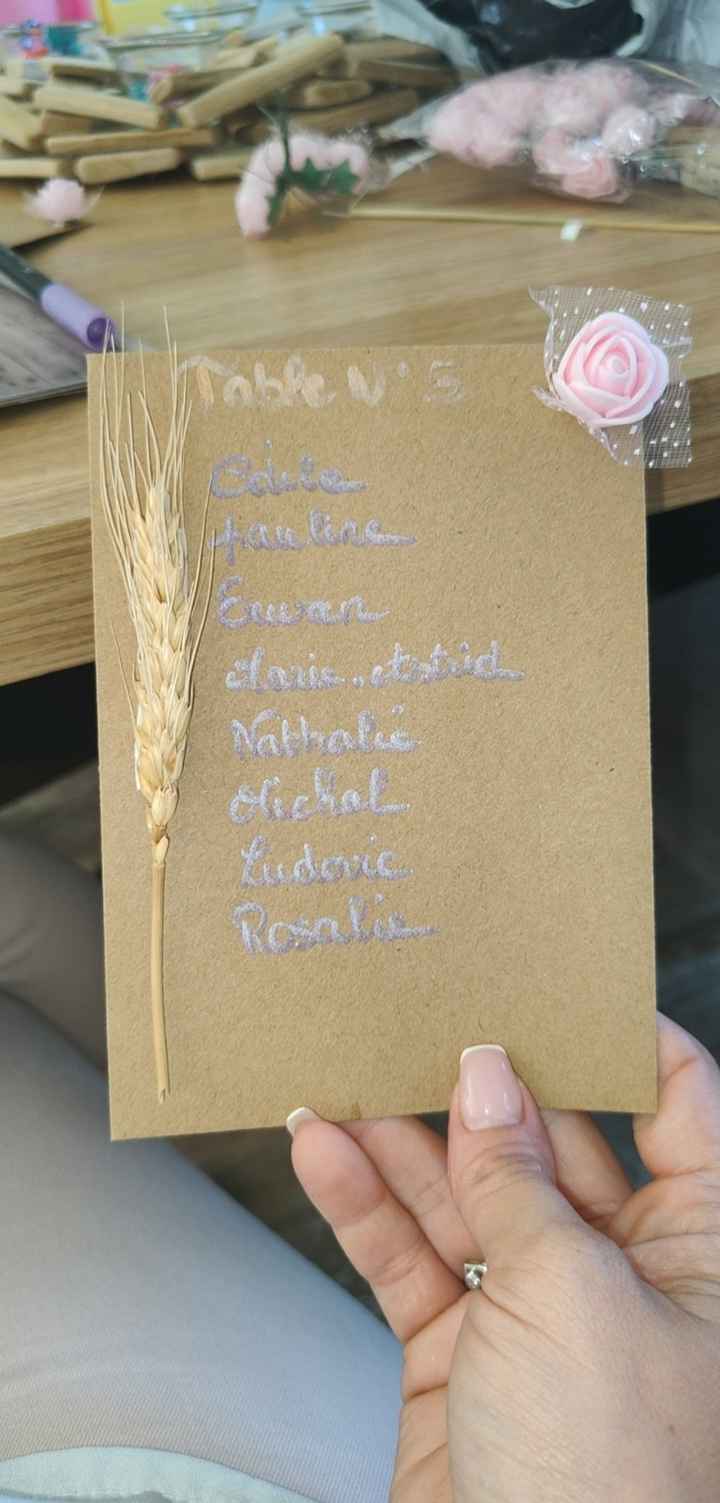 Table N° 5
Edite
Pauline
Erwan
Marie.Astrid
Nathalie
Michel
Ludovic
Rosalie